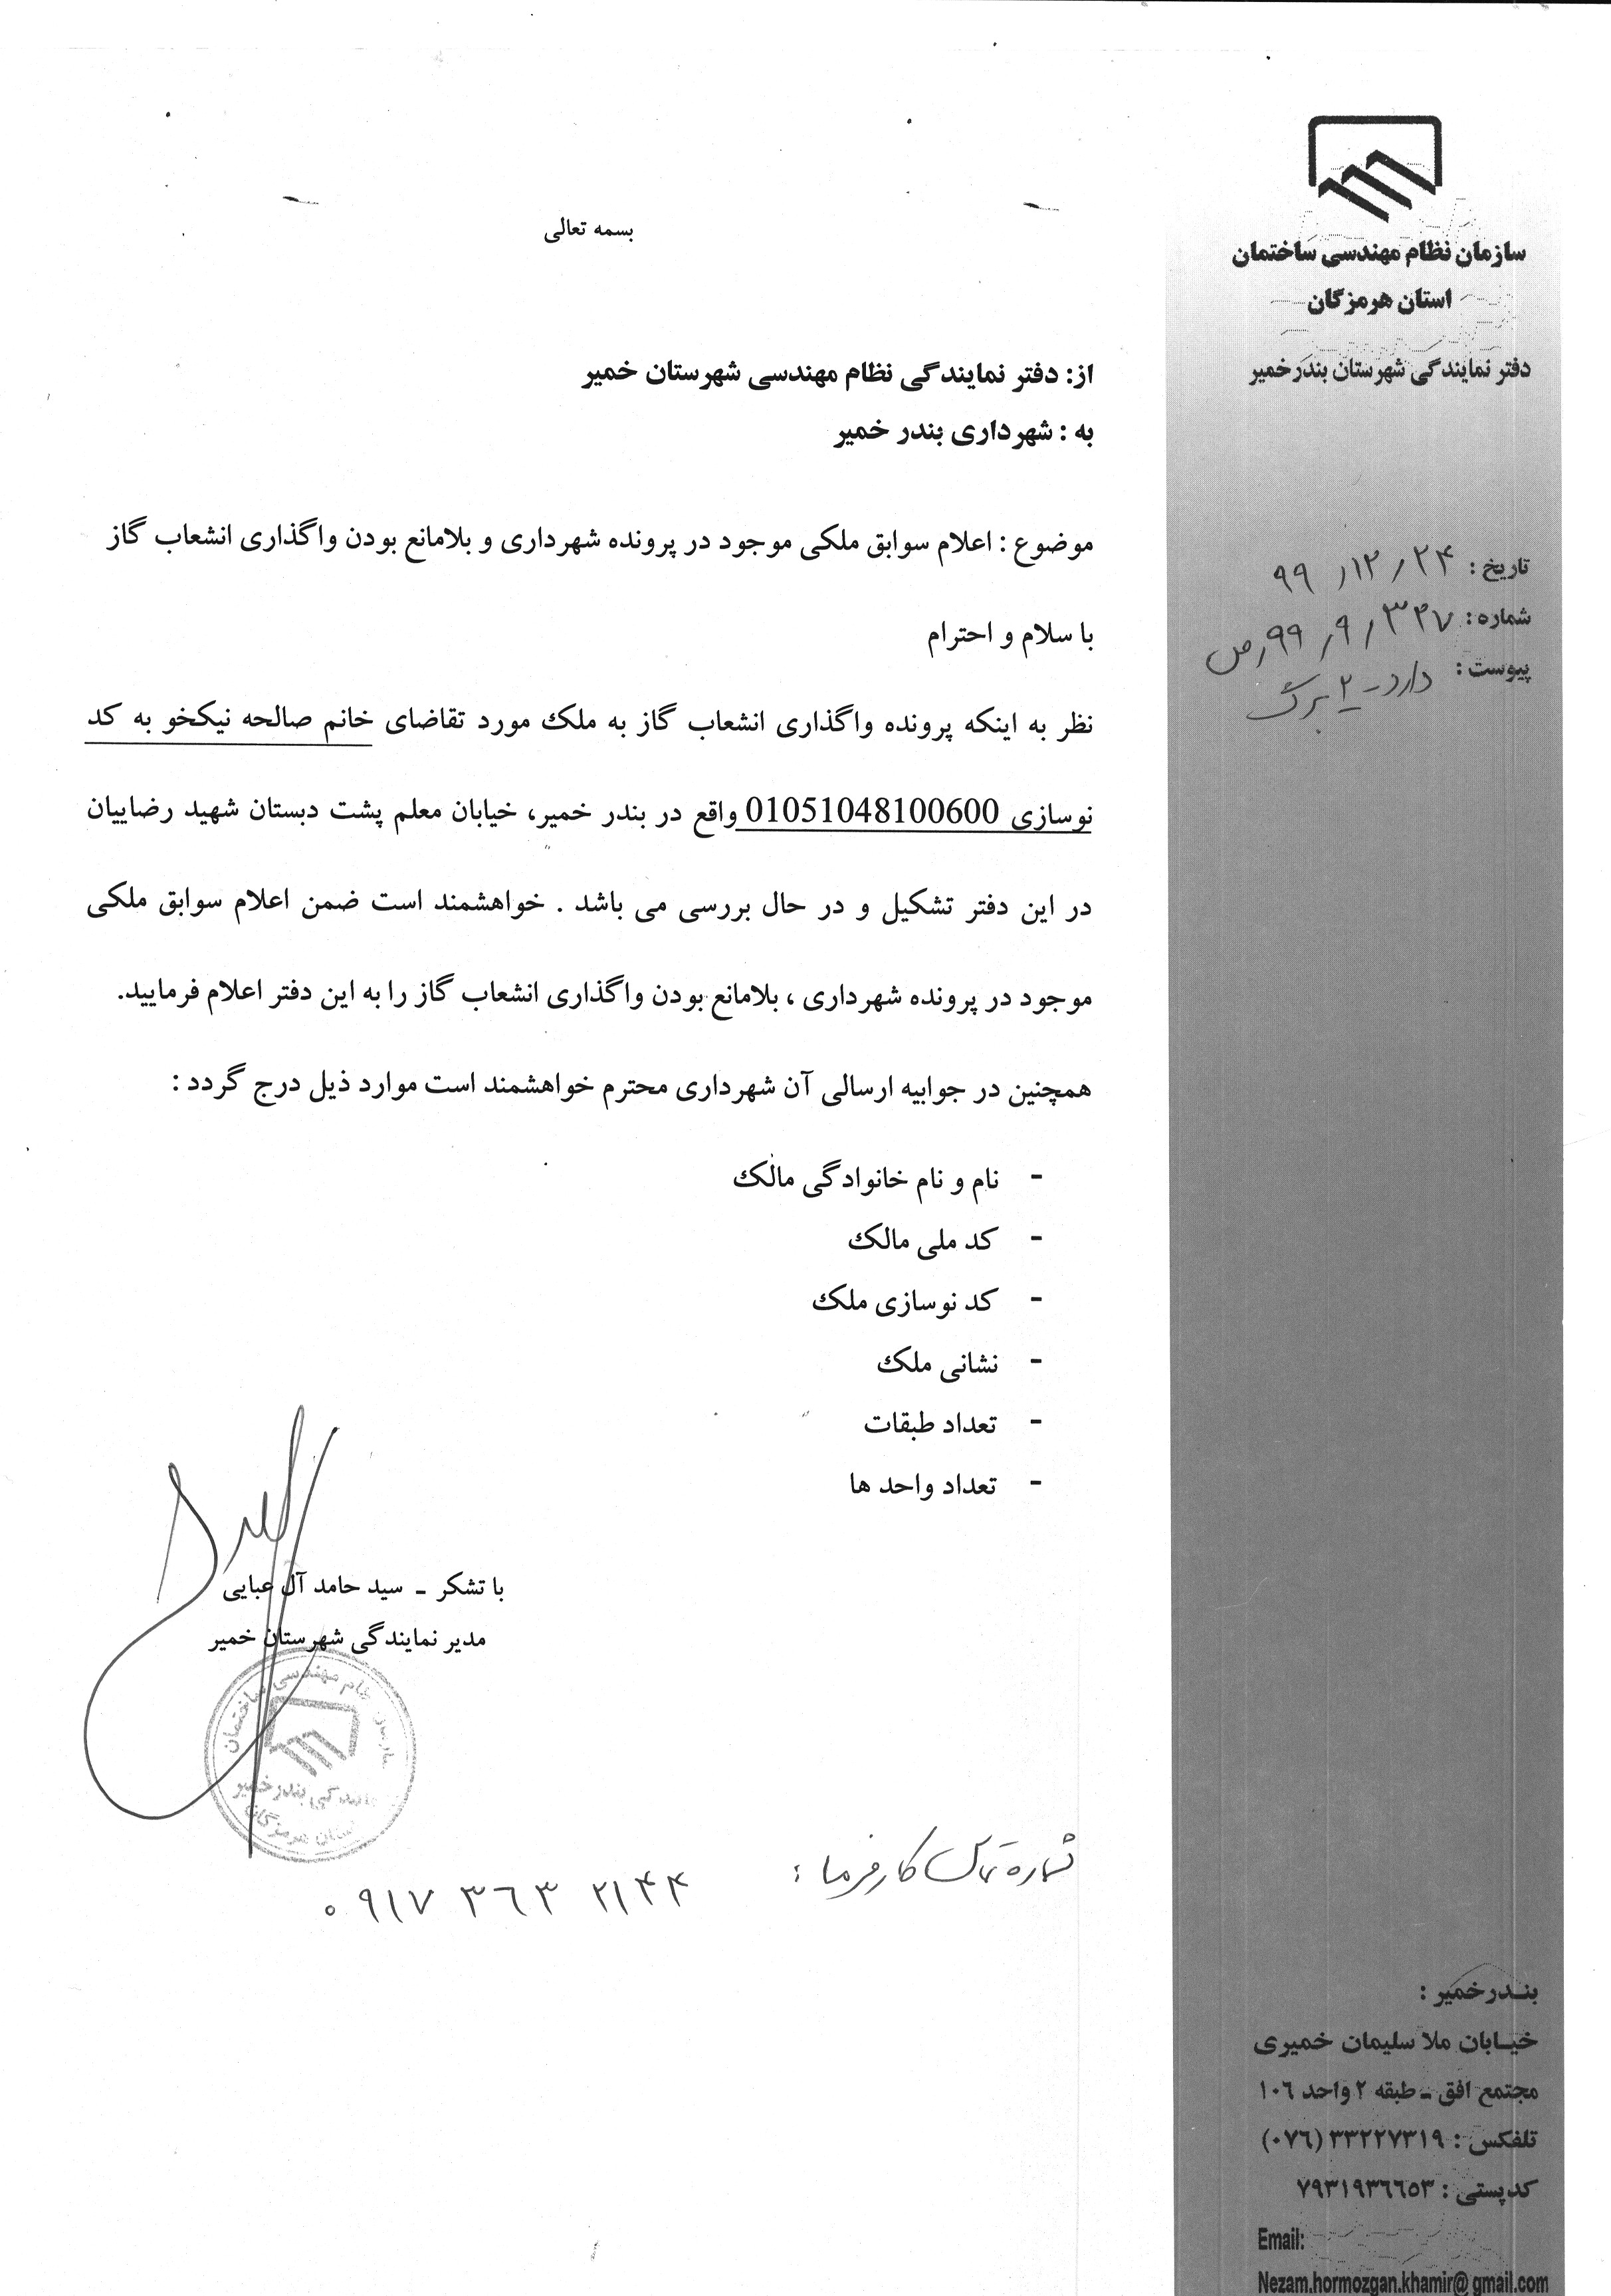 سازمان نظام مهندسی ساختمان
استان هرمزگان
دفتر نمایندگی شهرستان بندرخمیر
تاریخ : ۹۹/۱۲/۲۴
شماره : ۳۲۷/۹/۹۹/ص
پیوست : دارد - ۲ برگ
بسمه تعالی
از: دفتر نمایندگی نظام مهندسی شهرستان خمیر
به : شهرداری بندر خمیر
موضوع : اعلام سوابق ملکی موجود در پرونده شهرداری و بلامانع بودن واگذاری انشعاب گاز
با سلام و احترام
نظر به اینکه پرونده واگذاری انشعاب گاز به ملک مورد تقاضای خانم صالحه نیکخو به کد
نوسازی 01051048100600 واقع در بندر خمیر، خیابان معلم پشت دبستان شهید رضاییان
در این دفتر تشکیل و در حال بررسی می باشد . خواهشمند است ضمن اعلام سوابق ملکی
موجود در پرونده شهرداری ، بلامانع بودن واگذاری انشعاب گاز را به این دفتر اعلام فرمایید.
همچنین در جوابیه ارسالی آن شهرداری محترم خواهشمند است موارد ذیل درج گردد :
- نام و نام خانوادگی مالک
- کد ملی مالک
- کد نوسازی ملک
- نشانی ملک
- تعداد طبقات
- تعداد واحد ها
با تشکر ـ سید حامد آل عبایی
مدیر نمایندگی شهرستان خمیر
نظام مهندسی ساختمان
نمایندگی بندرخمیر
استان هرمزگان
شماره تماس کارفرما : ۰۹۱۷ ۳۶۳ ۲۱۴۴
بندرخمیر :
خیابان ملا سلیمان خمیری
مجتمع افق ـ طبقه ۲ واحد ۱۰۶
تلفکس : ۳۳۲۲۷۳۱۹ (۰۷۶)
کدپستی : ۷۹۳۱۹۳۶۶۵۳
Email:
Nezam.hormozgan.khamir@gmail.com